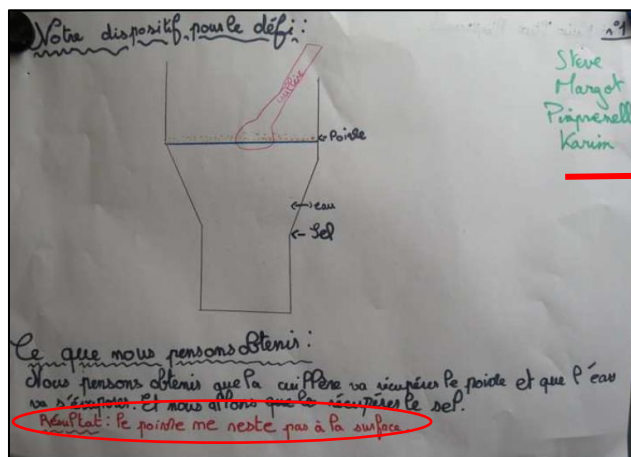 Notre dispositif, pour le défi :
n°1
Steve
Margot
Pimprenell
Karim
cuillère
Poivre
eau
Sel
Ce que nous pensons obtenir :
Nous pensons obtenir que la cuillère va récupérer le poivre et que l'eau
va s'évaporer. Et nous allons que le récupérer le sel.
Résultat : le poivre ne reste pas à la surface.